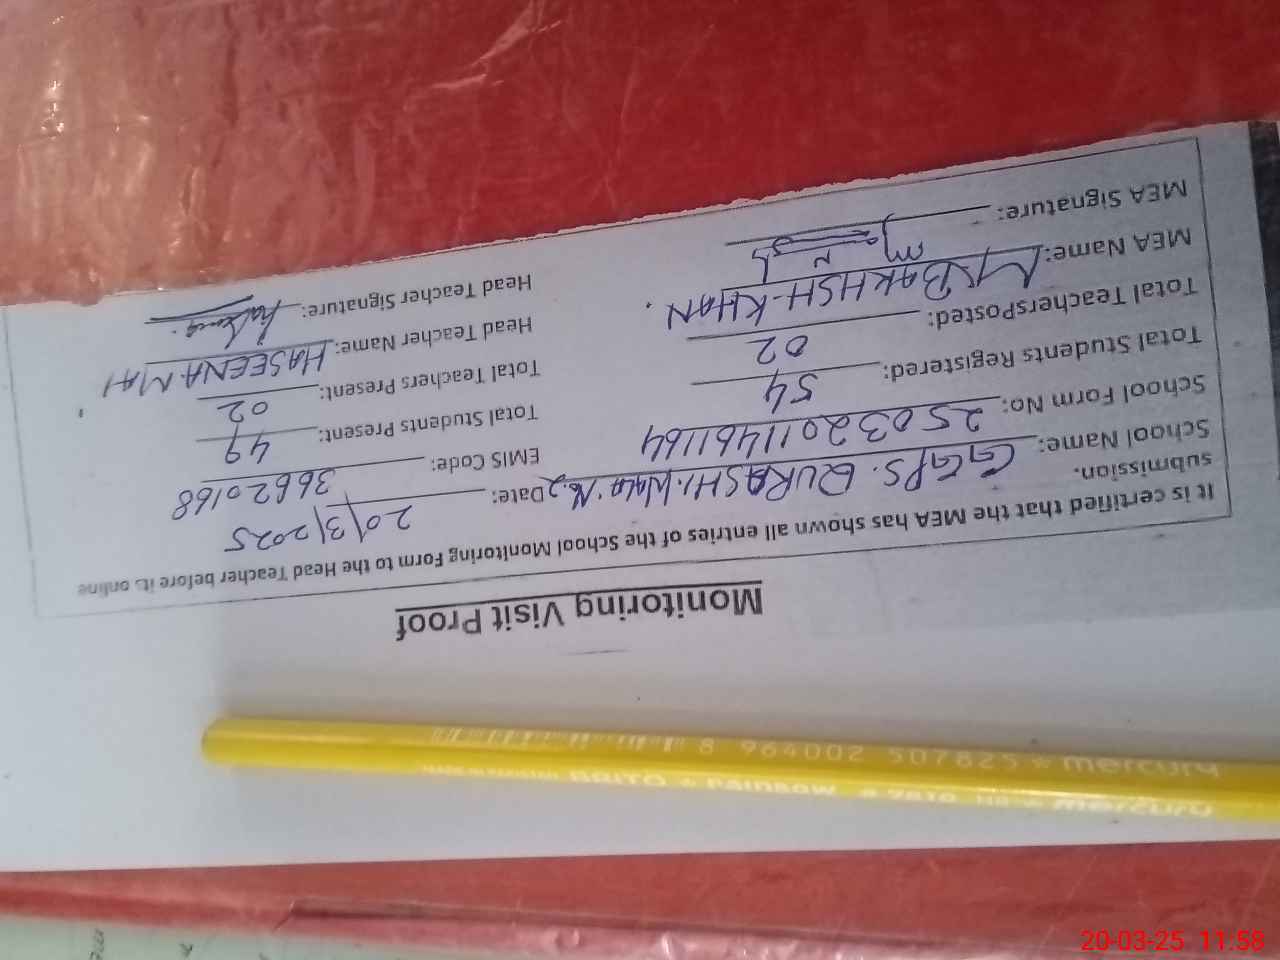 Monitoring Visit Proof
It is certified that the MEA has shown all entries of the School Monitoring Form to the Head Teacher before its online
submission. Date: 20/3/2025
School Name: GGPS. QURASHI. Wala. No. 2
EMIS Code: 36620168
School Form No: 250320114461164
Total Students Present: 49
Total Students Registered: 54
Total Teachers Present: 02
Total TeachersPosted: 02
Head Teacher Name: HASEENA MAI
MEA Name: M. BAKHSH. KHAN.
Head Teacher Signature:
MEA Signature:
8 964002 507825 ★ mercury
BRITO ★ RAINBOW mercury
20-03-25 11:58